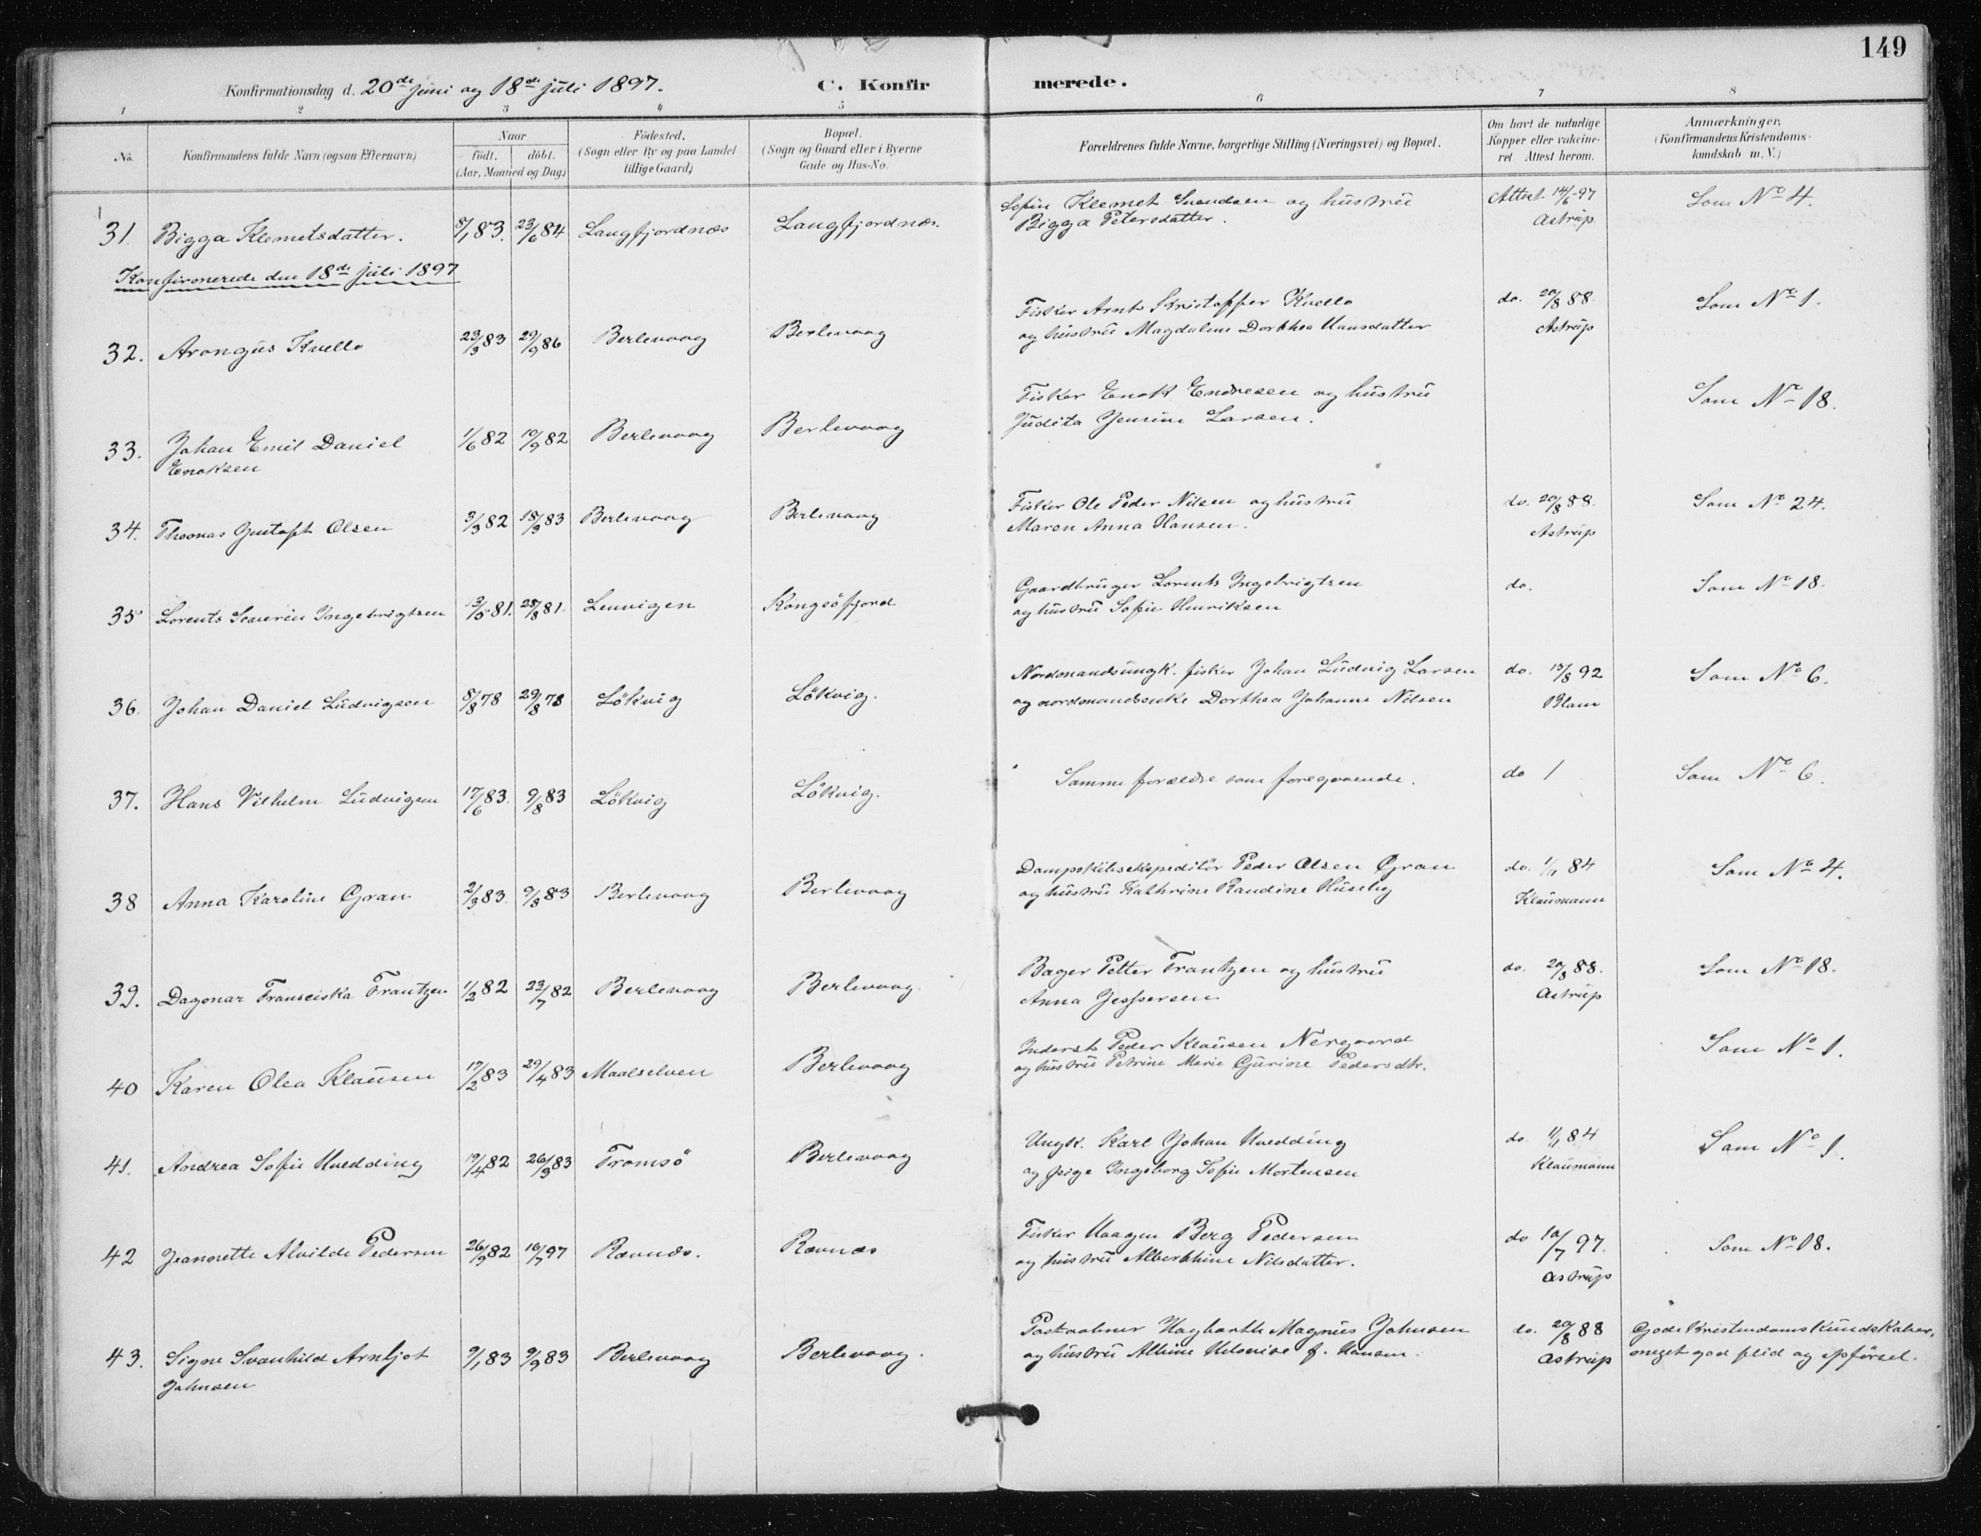 149
Konfirmationsdag d. 20de juni og 18de juli 1897.
C. Konfirmerede.
1 2 3 4 5 6 7 8
No.
Konfirmandens fulde Navn (ogsaa Efternavn)
Naar
födt. döbt.
(Aar, Maaned og Dag)
Födested.
(Sogn eller By og paa Landet
tillige Gaard)
Bopæl.
(Sogn og Gaard eller i Byerne
Gade og Hus-No.
Forældrenes fulde Navne, borgerlige Stilling (Næringsvei) og Bopæl.
Om havt de naturlige
Kopper eller vakcine-
ret Attest herom.
Anmærkninger.
(Konfirmandens Kristendoms-
kundskab m. V.)
31. Bigga Klemetsdatter. 8/1 83. 23/6 84 Langfjordnæs Langfjordnæs.
Klemet Svendsen og hustru
Bigga Petersdatter.
Attest 14/6-97
Astrup
Som No 4.
Konfirmerede den 18de juli 1897
32. Arongus Kvello 23/3 83 29/9 86 Berlevaag Berlevaag
Fisker Arnt Kristoffer Kvello
og hustru Magdalene Dorthea Hansdatter
do. 20/8 88.
Astrup
Som No 1.
33. Johan Emil Daniel
Enoksen
1/6 82 10/9 82 Berlevaag Berlevaag
Fisker Enok Endresen og hustru
Judita Jensine Larsen.
Som No 18.
34. Thomas Gustaft Olsen 3/3 82 18/3 83 Berlevaag Berlevaag
Fisker Ole Peder Nilsen og hustru
Maren Anna Hansen.
do. 20/8 88.
Astrup
Som No 24.
35 Lorents Severin Ingebrigtsen 13/5 81. 28/8 81. Lenvigen Kongsöfjord
Gaardbruger Lorents Ingebrigtsen
og hustru Sofie Henriksen
do.
Som No 18.
36. Johan Daniel Ludvigsen 8/8 78 29/8 78 Lökvig Lökvig.
Nordmandsungk. fisker Johan Ludvig Larsen
og nordmandsenke Dorthea Johanne Nilsen
do. 13/8 92
Blom
Som No 6.
37. Hans Vilhelm Ludvigsen 17/6 83. 9/8 83 Lökvig Lökvig.
Samme forældre som foregaaende.
do
Som No 6.
38 Anna Karoline Gran 2/3 83. 9/8 83 Berlevaag Berlevaag
Dampskibsekspeditör Peder Olsen Gran
og hustru Kathrine Randine Huseby
do. 1/1 84
Klaumann
Som No 4.
39. Dagmar Franciska Frantzen 1/2 82 23/7 82 Berlevaag Berlevaag.
Bager Petter Frantzen og hustru
Anna Jespersen
do. 20/8 88.
Astrup
Som No 18.
40 Karen Olea Klausen 17/2 83 29/4 83 Maalselven Berlevaag
Inderst Peder Klausen Nergaard
og hustru Petrine Marie Gurine Pedersdtr.
Som No 1.
41. Andrea Sofie Hvedding 19/4 82 26/3 83 Tromsö Berlevaag
Ungk. Karl Johan Hvedding
og pige Ingeborg Sofie Mortensen
do. 11/1 84
Klaumann
Som No 1.
42 Jeanette Alvilde Pedersen 26/9 82 16/7 97 Rævnæs. Rævnæs
Fisker Haagen Berg Pedersen
og hustru Alberthine Nilsdatter.
do 10/7 97.
Astrup
Som No 18.
43. Signe Svanhild Arnljot
Johnsen
9/1 83 9/9 83 Berlevaag Berlevaag.
Postaabner Hagbarth Magnus Johnsen
og hustru Albine f. Hansen.
do. 20/8 88
Astrup
Gode Kristendomskundskaber,
meget god flid og opförsel.